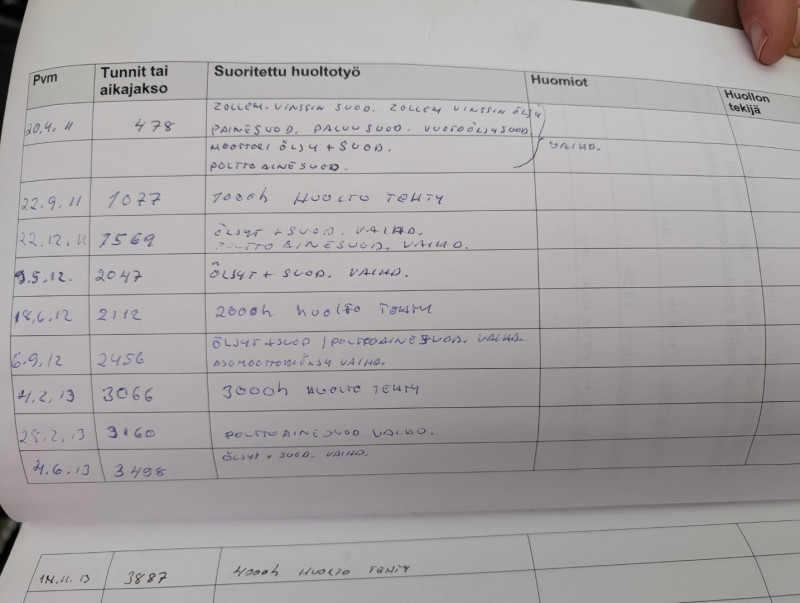 Pvm Tunnit tai aikajakso Suoritettu huoltotyö Huomiot Huollon tekijä
ZOLLEM. VINSSIN SUOD. ZOLLEM VINSSIN ÖLJY
20.4.11 478 PAINESUOD. PALUUSUOD. VUOTOÖLJYSUOD
MOOTTORI ÖLJY + SUOD. VAIHD.
POLTTOAINESUOD.
22.9.11 1077 1000h HUOLTO TEHTY
22.12.11 1569 ÖLJYT + SUOD. VAIHD.
POLTTOAINESUOD. VAIHD.
9.5.12. 2047 ÖLJYT + SUOD. VAIHD.
18.6.12 2112 2000h huolto TEHTY
6.9.12 2456 ÖLJYT + SUOD / POLTTOAINESUOD. VAIHD.
AJOMOOTTORIÖLJY VAIHD.
4.2.13 3066 3000h HUOLTO TEHTY
25.2.13 3160 POLTTOAINESUOD VAIHD.
4.6.13 3498 ÖLJYT + SUOD. VAIHD.
14.11.13 3887 4000h HUOLTO TEHTY